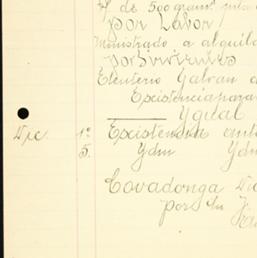 de 500 gram
por Labor
ministrado a alquila
por Sirvientes
Eleuterio Galvan
Existencia para
Ygual
Dic. 1º Existencia ant
5. Ydm Ydm
Covadonga Di
por su